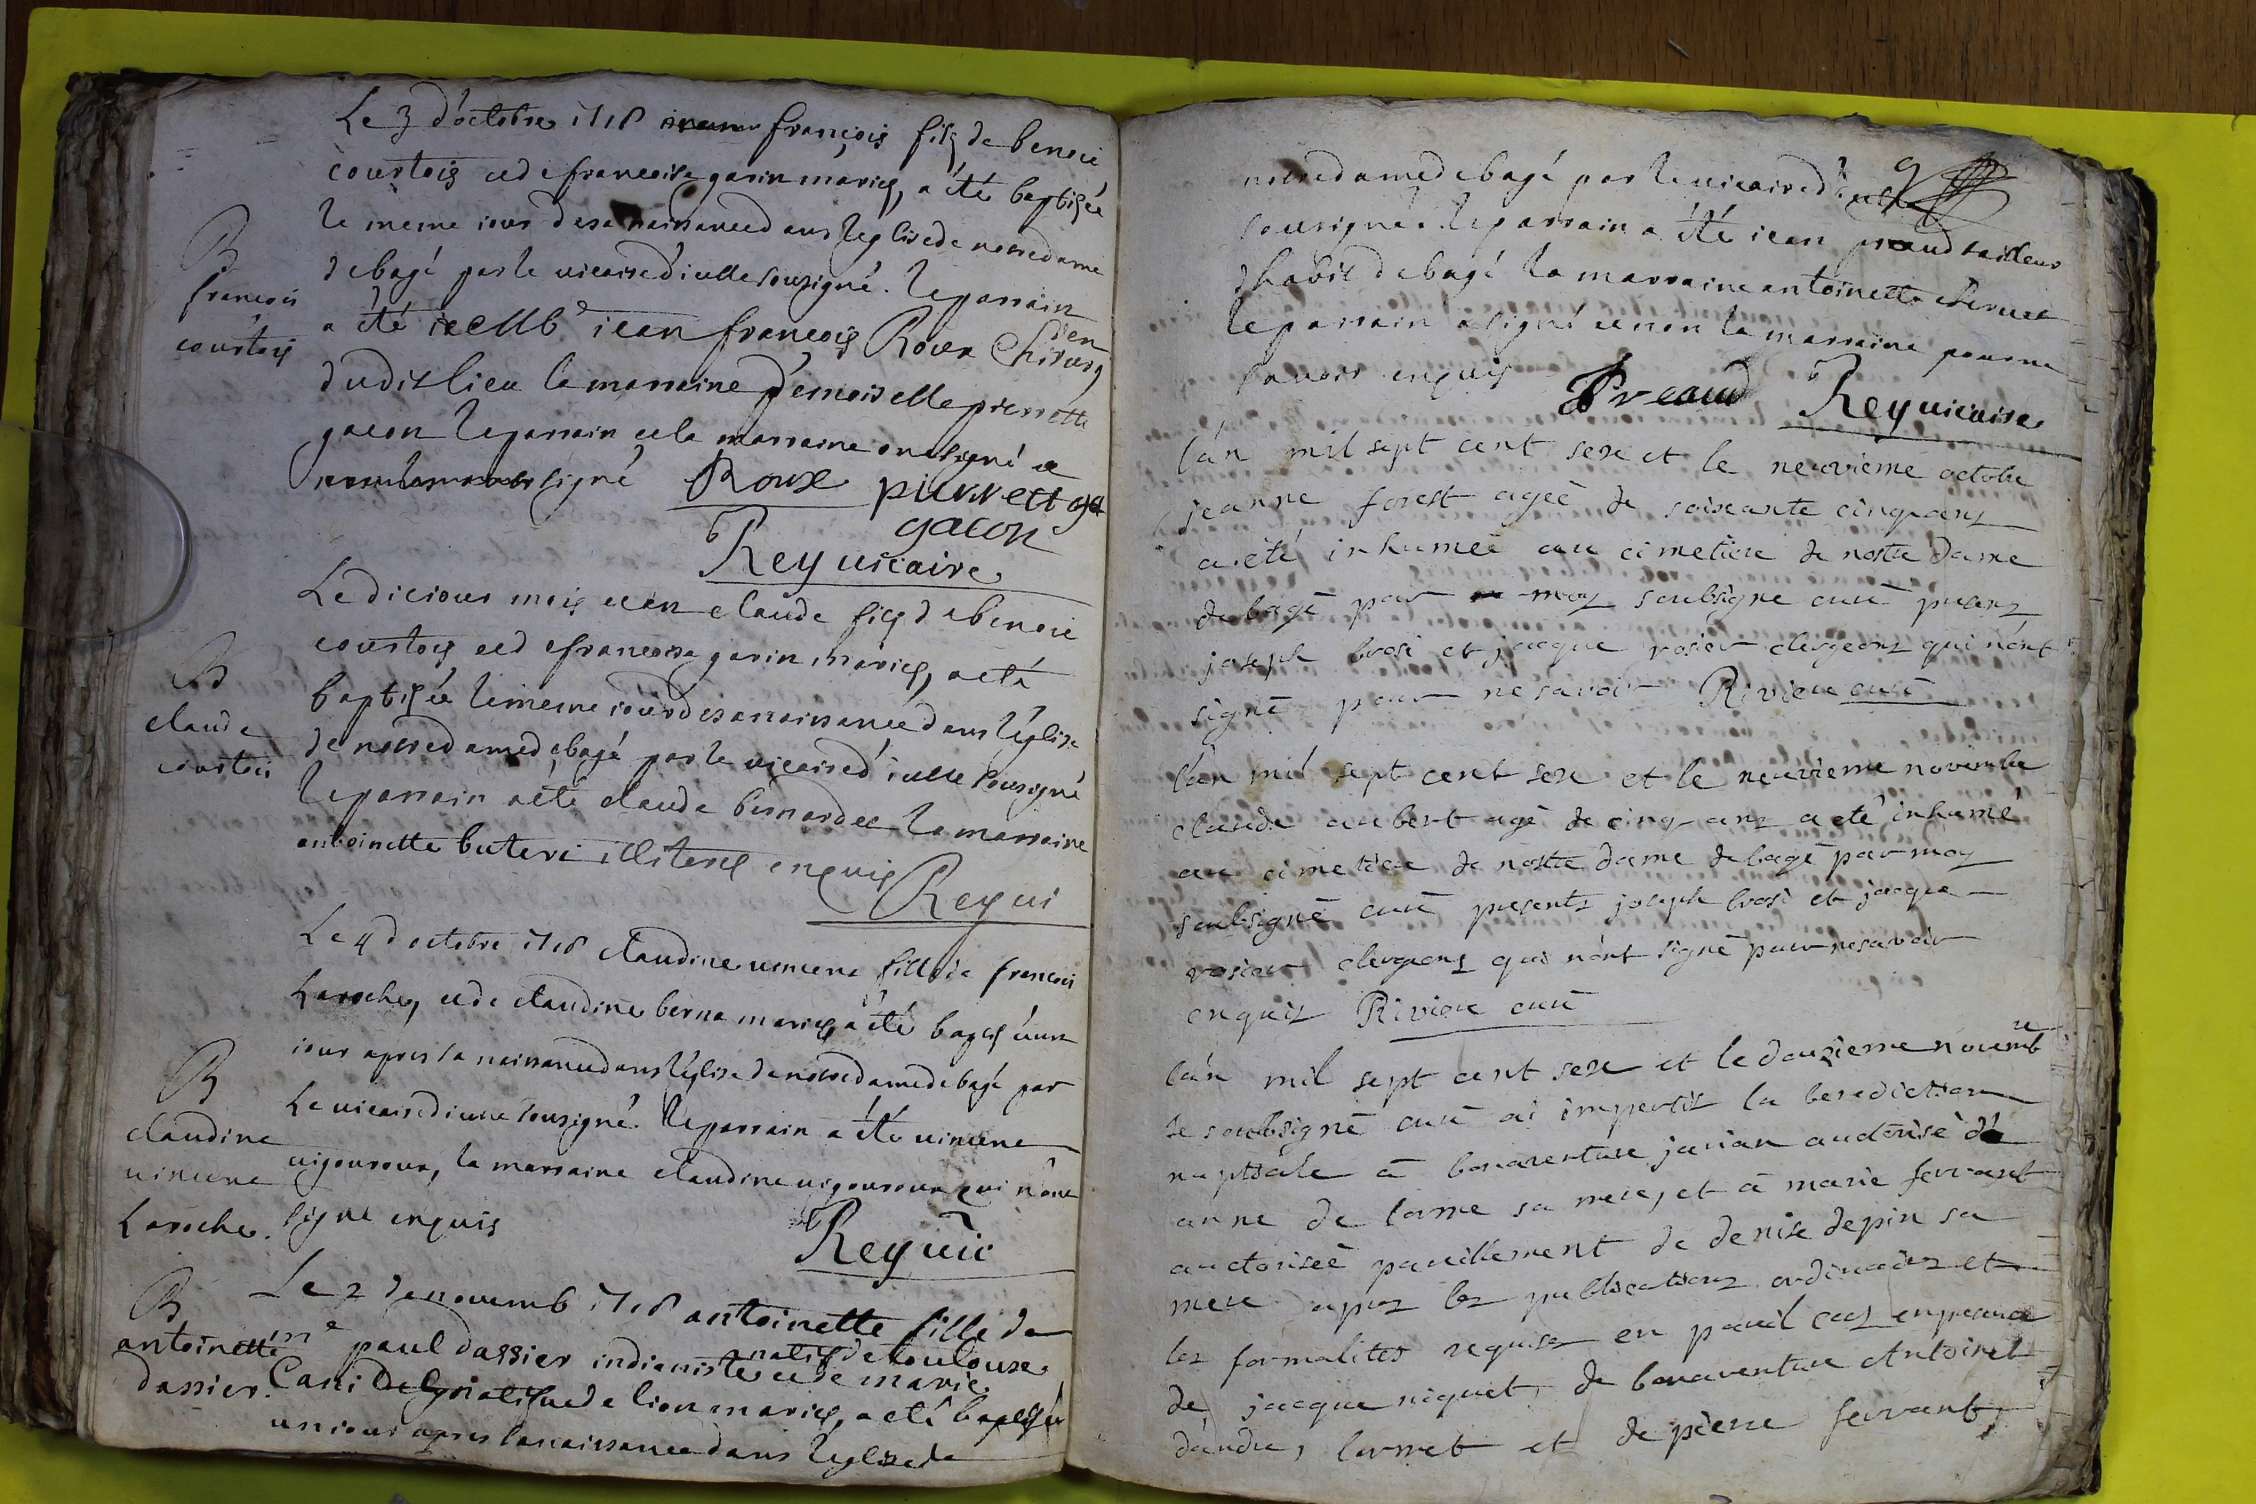 Le 3 d'octobre 1718 françois fils de benoi
courtois et de francoise garin mariés, a été baptisée
le même iour de sa naissance dans l'eglise de nostre dame
de bagé par le vicaire d'icelle sousigné. le parrain
B
françois
courtois
a été iean françois Roux Chirurgien
dudit lieu la marraine demoiselle pierrette
gacon le parrain et la marraine ont signé et
signé Roux pierrette
gacon
Rey vicaire
Le dit iour mois et an claude fils de benoi
courtois et de francoise garin mariés, a été
B
claude
courtois
baptisée le meme iour de sa naissance dans l'église
de nostre dame de bagé par le vicaire d'icelle sousigné
le parrain a été claude bernard et la marraine
antoinette buteri illiterés enquis
Rey vi
Le 4 d'octobre 1718 claudine vincene fille de francois
Laroche, et de claudine berna mariés, a été baptisée un
iour apres sa naissance dans l'église de nostre dame de bagé par
B
claudine
vincene
Laroche.
Le vicaire d'icelle sousigné. le parrain a été vincene
vigouroux, la marraine claudine vigouroux qui n'ont
signé enquis
Rey vic
B
antoinette
dassier.
Le 2 de novemb 1718 antoinette fille de
paul dassier indianiste natif de toulouse et de marie
native de lion mariés, a été baptisée
un iour apres la naissance dans l'eglise de
9
nostre dame de bagé par le vicaire d'icelle
sousigné. le parrain a été iean preaud tailleur
d'habit de bagé la marraine antoinette
le parrain a signé et non la marraine pour ne
savoir enquis
Preaud Rey vicaire
l'an mil sept cent sexe et le neuvieme octobre
jeanne forest ageè de soixante cinq ans
a été inhumeè au cimetiere de nostre dame
de bagé par moy soubsigné curé presens
joseph brosi et jacque rosier clergeons qui n'ont
signé pour ne savoir Riviere curé
l'an mil sept cent sexe et le neuvieme novembre
claude aubert agé de cinq ans a eté inhumé
au cimetiere de nostre dame de bagé par moy
soubsigné curé presents joseph brosi et jacque
rosier clergeons qui n'ont signé pour ne savoir
enquis Riviere curé
l'an mil sept cent sexe et le douzieme novembre
je soubsigné curé ai imperti la benediction
nuptiale à bonaventure janian auctorisé d'
anne de lorme sa mere, et à marie servant
auctoriseé pareillement de denise depin sa
mere apres les publications ordinaires et
les formalités requises en pareil cas en presence
de jacque niquet, de bonaventure Antoinet
d'andre, lornet et de pierre servant,